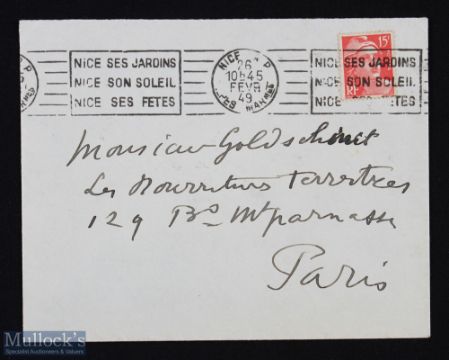 NICE R P
26
10H45
FEVR
49
ALPES MARMES
NICE SES JARDINS
NICE SON SOLEIL
NICE SES FETES
NICE SES JARDINS
NICE SON SOLEIL
NICE SES FETES
15F
RF
Monsieur Goldschmit
Les Nourritures Terrestres
129 Bd Mtparnasse
Paris
Mullock's
Specialist Auctioneers & Valuers